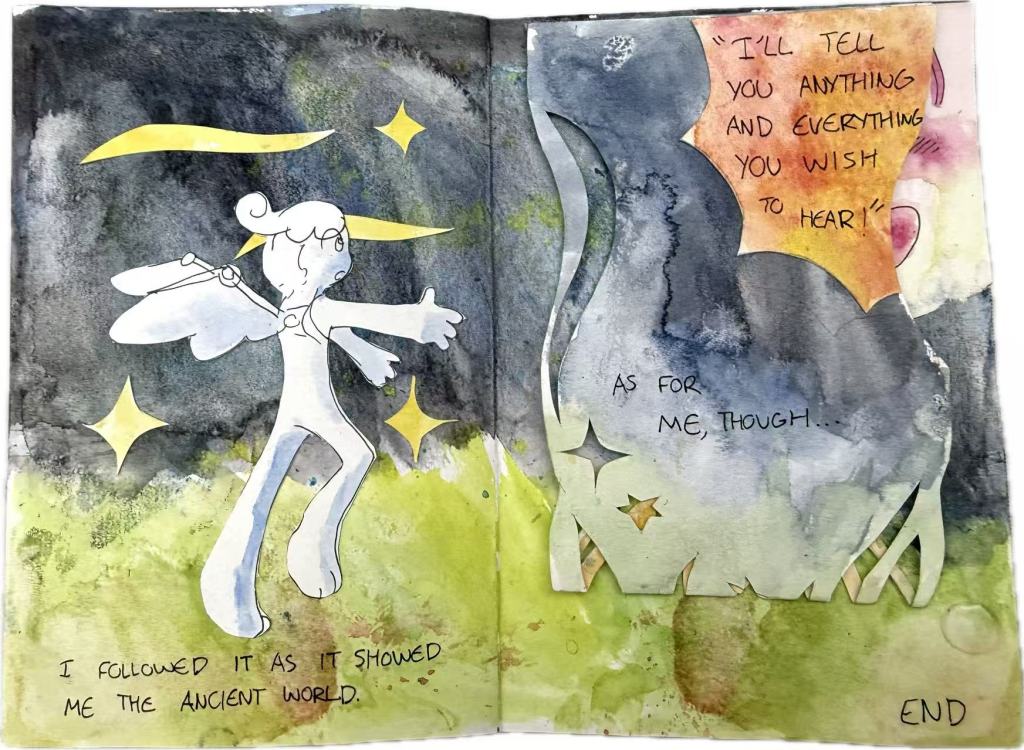 I FOLLOWED IT AS IT SHOWED
ME THE ANCIENT WORLD.
"I'LL TELL
YOU ANYTHING
AND EVERYTHING
YOU WISH
TO HEAR!"
AS FOR
ME, THOUGH...
END